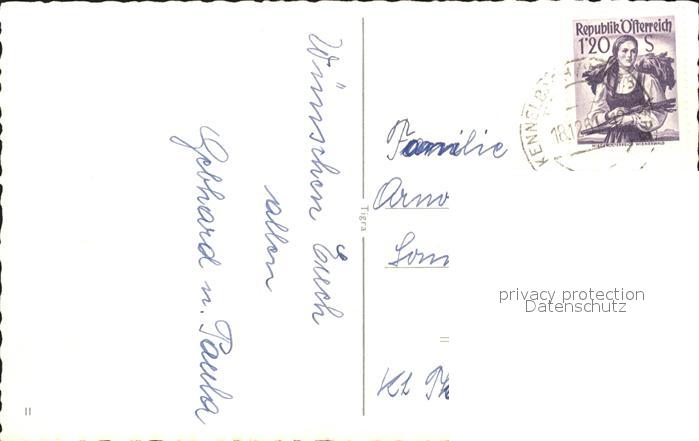 Wünschen Euch
allen
Gebhard u. Paula
Tigra
Familie
Arno
Republik Österreich
1'20 S
NIEDERÖSTERREICH WIENERWALD
KENNELB
18.12.61
privacy protection
Datenschutz